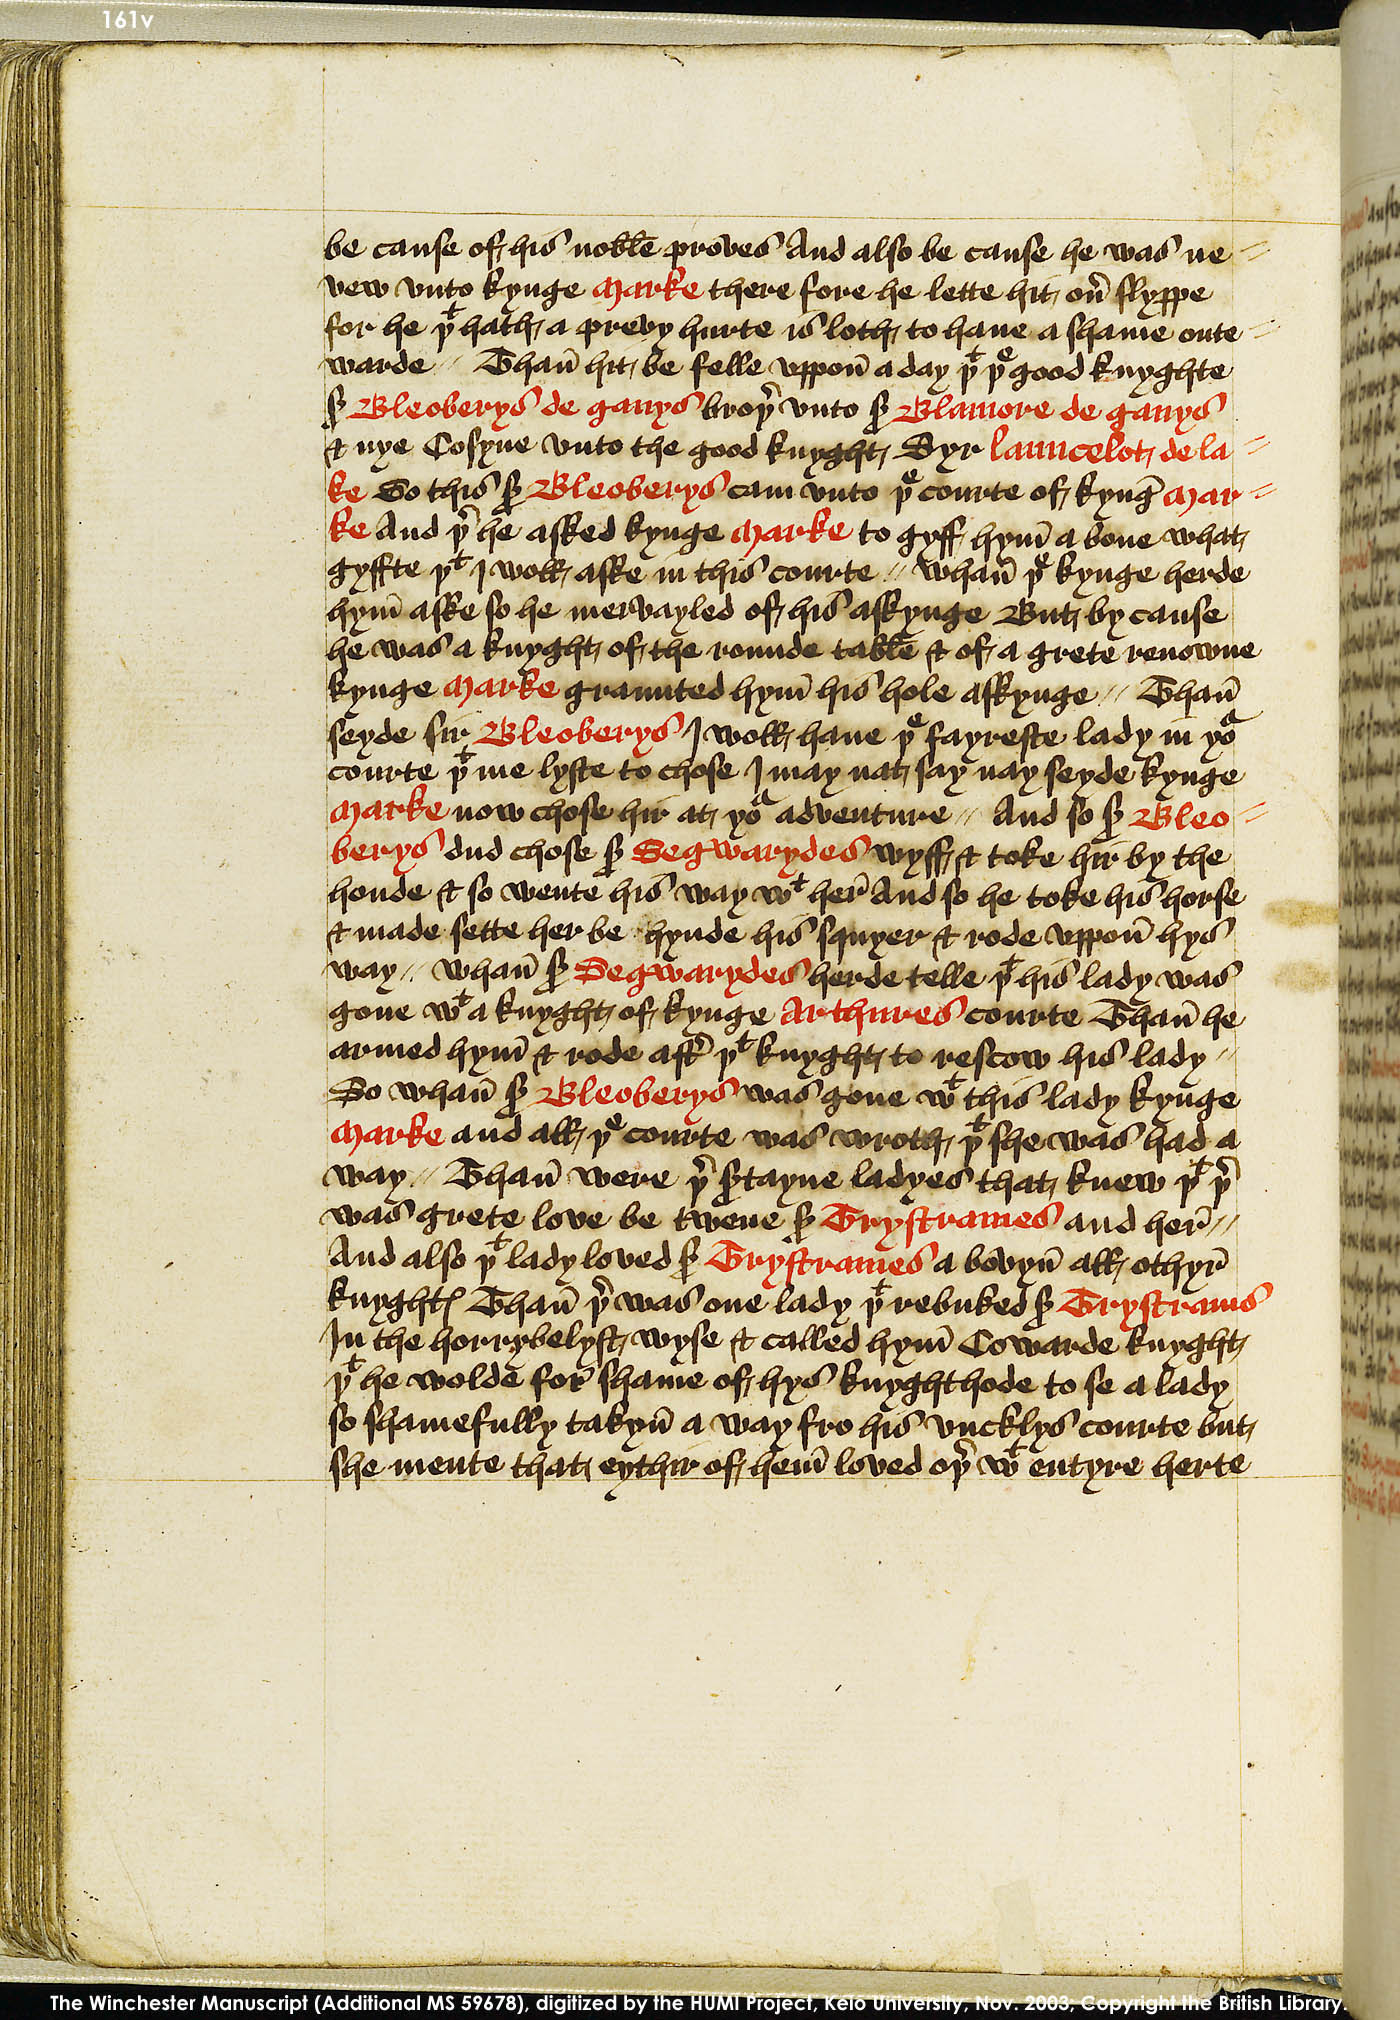 161v
be cause of his noble proves And also be cause he was ne⸗
vew vnto kynge Marke there fore he lette hit on̄ slyppe
for he þͭ hath a prevy hurte is loth to haue a shame oute⸗
warde // Than̄ hit be felle vppon̄ a day þͭ þͤ good knyghte
S͛ Bleoberys de ganys broþ͛ vnto S͛ Blamore de ganys
& nye Cosyne vnto the good knyght Syr launcelot de la⸗
ke So this S͛ Bleoberys cam vnto þͤ courte of kynḡ Mar⸗
ke And þ͛ he asked kynge Marke to gyff hym̄ a bone what
gyffte þͭ I woll aske in this courte // Whan̄ þͤ kynge herde
hym̄ aske so he mervayled of his askynge But by cause
he was a knyght of the rounde table & of a grete renowne
kynge Marke graunted hym̄ his hole askynge // Than̄
seyde sir Bleoberys I woll haue þͤ fayreste lady in yoͬ
courte þͭ me lyste to chose I may nat say nay seyde kynge
Marke now chose hir at yoͬ adventure // And so S͛ Bleo⸗
berys dud chose S͛ Segwarydes wyff & toke hir by the
honde & so wente his way wͭ her̄ And so he toke his horse
& made sette her be hynde his squyer & rode vppon̄ hys
way // Whan̄ S͛ Segwarydes herde telle þͭ his lady was
gone wͭ a knyght of kynge Arthures courte Than̄ he
armed hym̄ & rode aft͛ þͭ knyght to rescow his lady //
So whan̄ S͛ Bleoberys was gone wͭ this lady kynge
Marke and all þͤ courte was wroth þͭ she was had a
way // Than̄ were þ͛ S͛tayne ladyes that knew þͭ þ͛
was grete love be twene S͛ Trystrames and her̄ //
And also þͭ lady loved S͛ Trystrames a bovyn̄ all othyr̄
knyghtꝭ Than̄ þ͛ was one lady þͭ rebuked S͛ Trystrams
In the horrybelyst wyse & called hym̄ Cowarde knyght
þͭ he wolde for̄ shame of hys knyghthode to se a lady
so shamefully takyn̄ a way fro his vncklys courte but
she mente that eythir of hem̄ loved oþ͛ wͭ entyre herte
The Winchester Manuscript (Additional MS 59678), digitized by the HUMI Project, Keio University, Nov. 2003; Copyright the British Library.